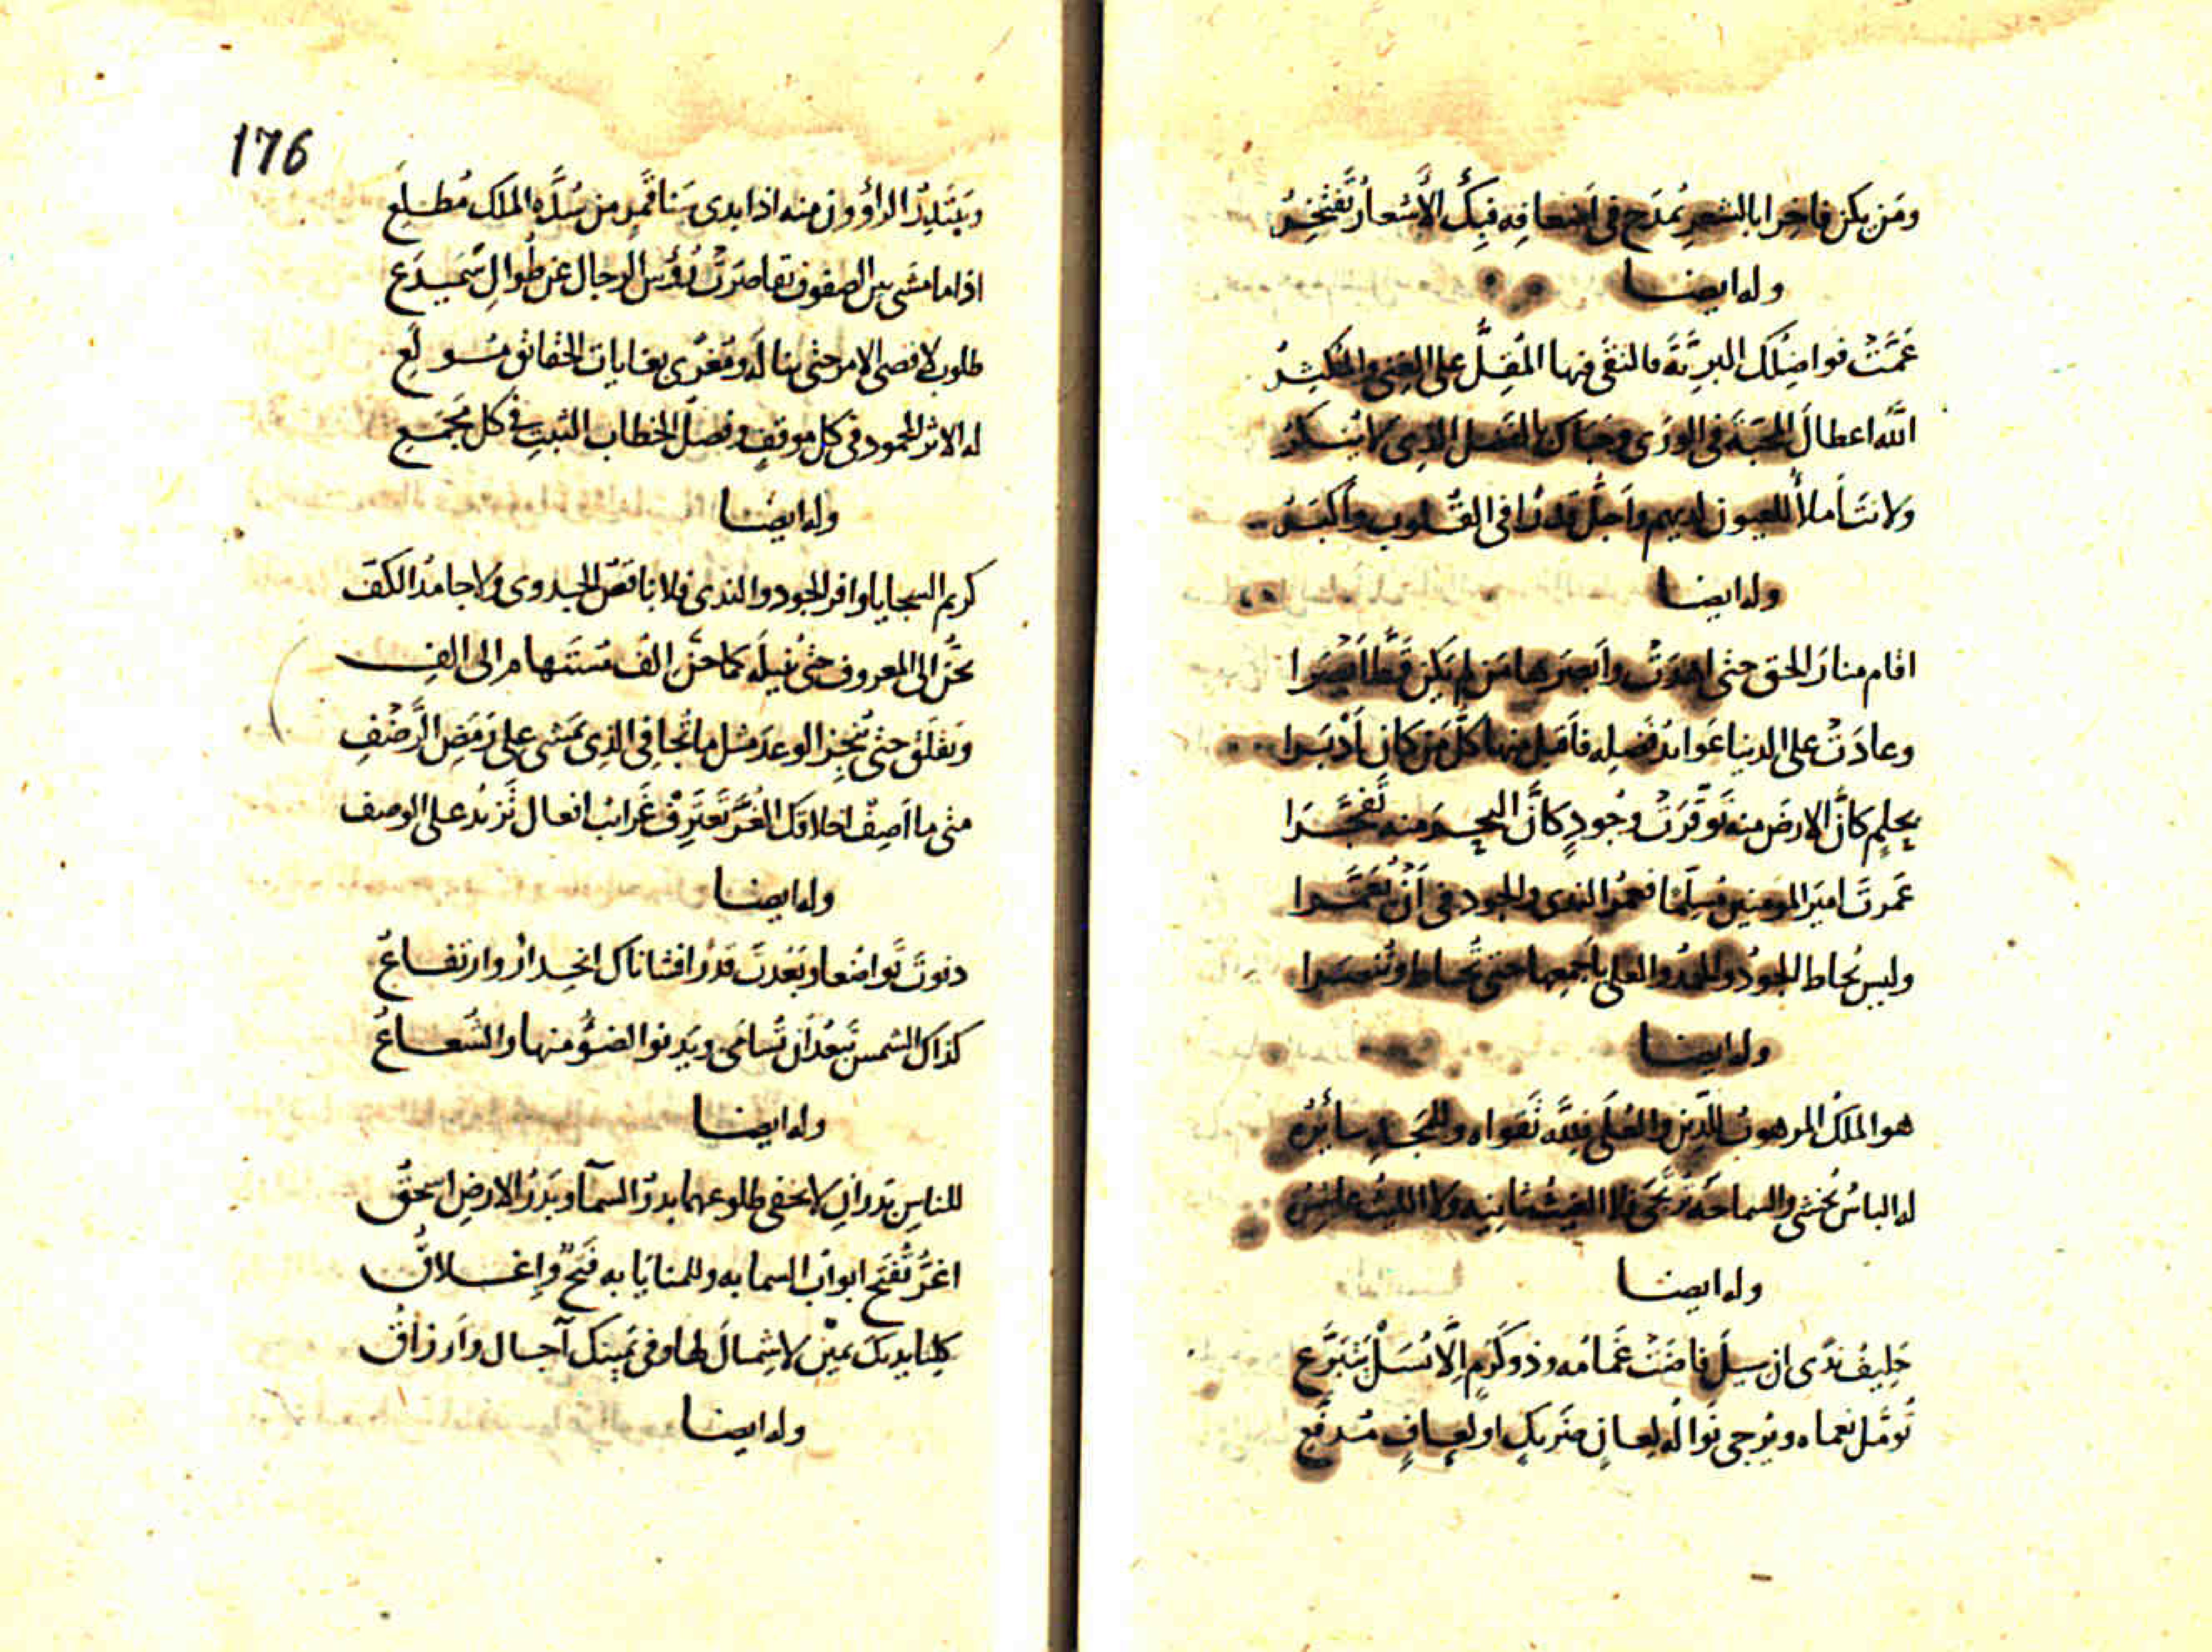 ومَن يكن فاخِرا بالشعرِ يُمدَح في اضعافِه فبِكَ الأَشعارُ تَفتَخِرُ
وله ايضا
عَمَّتْ فواضِلُكَ البرِيَّةَ فالتقى فيها المُقِلُّ على الغِنى والمُكثِرُ
اللّه اعطاكَ المحبّةَ في الورَى وحَباكَ بالفَضل الذِى لا يُنكَرُ
ولانتَ أملأُ للعيون لديهم واَجلُّ قدرًا في القُلوب وأكبَرُ
وله ايضا
اقام منارَ الحق حتى اهتدَت وأبصَرَها مَن لم يَكن قَطُّ ابصَرا
وعادَتْ على الدنيا عَوائدُ فضلِه فأقبل منها كلُّ مَن كان أدْبَرا
بحلمٍ كأنّ الارضَ منه تَوقَّرَتْ وجُودٍ كأنَّ البحرَ منه تَفَجَّرَا
عَمرتَ اميرَ المومنين مُسلَّما فعمرُ الندى والجود في أنْ تُعَمَّرا
وليس يُحاط الجودُ والحمدُ والعلى باجمعِها حتى تُحاط وتُنصَرا
وله ايضا
هو الملكُ المرهوبُ للدّين والعُلَى فللّه تَقواه وللمَجدِ سائرُه
له الباسُ يُخشى والسماحَة تُرتجَى فلا الغيث ثانِيه ولا الليث عاشِرُه
وله ايضا
حَلِيفُ ندًى ان سِيلَ فاضَتْ غَمامُه وذو كَرَمٍ إلّا يُسَلْ يَتَبَرَّعِ
تُومَّل نعماه ويُرجى نَوالُه لِعانٍ ضَريكٍ او لعافٍ مُدفَّعِ
176
ويَبتَدِرُ الراؤون منه اذا بدى سَنا قَمَرٍ من سُدَّه الملك مُطلَعِ
اذا ما مشى بين الصفوف تقاصَرَتْ رُؤسُ الرجال عن طُوالٍ سَميدَعِ
طلوب لاقصى الامر حتى ينالَه ومُغرًى بغايات الحقائق مُولَعِ
له الاثر المحمود في كل موقفٍ وفصلُ الخطاب الثبتِ في كل مَجمَعِ
وله ايضا
كريم السجايا وافر الجود والندى فلا ناقصُ الجدوى ولا جامدُ الكف
تحنُّ الى المعروف حتى تُنيلَه كما حنَّ الفٌ مُستهام الى الفِ
وتَقلَق حتى تُنجِز الوعدَ مثل ما تُجافى الذِى يَمشى على رَمَضِ الرَّضْفِ
متى ما اَصِفْ اخلاقَك الغُرَّ تَعتَرِفْ غَرائب افعال تَزيدُ على الوصف
وله ايضا
دنوتَ تَواضعا وبَعُدتَ قدرًا فشاناك انحِدارُ وارتفاعُ
كذاك الشمس تَبعُد اَن تُسامَى ويَدنو الضوُّ منها والشُعاعُ
وله ايضا
للناسِ بدرانِ لا يخفى طلوعهما بدرُ السمآ وبَدرُ الارضِ اسحقُ
اغرُّ تُفتَح ابوابُ السما به وللمنايَا به فَتحٌ وإغلاقُ
كلتا يديك يمينٌ لا شِمالَ لها وفى يَمينك آجال وأرزاقُ
وله ايضا